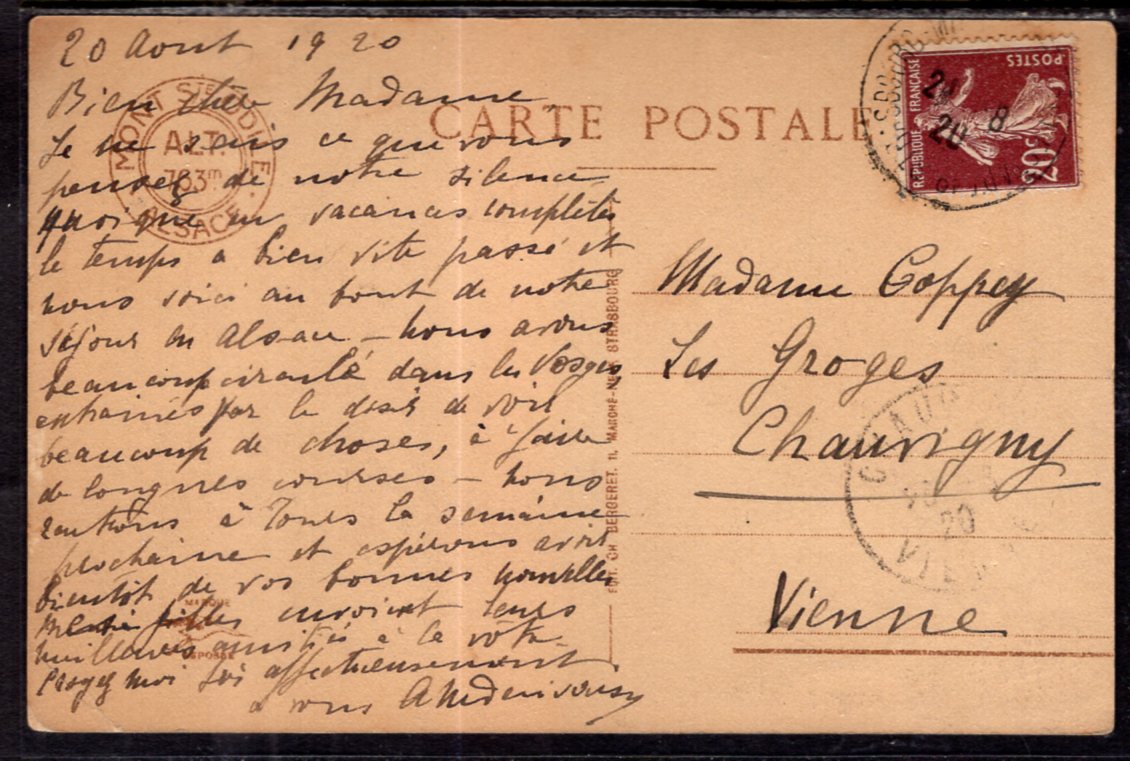 20 Aout 1920
Bien chère Madame
Je ne sais ce que vous
pensez de notre silence
quoique en vacances complètes
le temps a bien vite passé et
nous voici au bout de notre
séjour en Alsace – nous avons
beaucoup circulé dans les Vosges
entrainés par le désir de voir
beaucoup de choses, à faire
de longues courses – nous
rentrons à Tours la semaine
prochaine et espérons avoir
bientôt de vos bonnes nouvelles
filles envoient leurs
meilleures amitiés à la vôtre
Croyez moi affectueusement
à vous
MONT STE ODILE
ALT.
763m
ALSACE
CARTE POSTALE
FDT. CH. BERGERET. 11, MARCHÉ-NEUF STRASBOURG
MARQUE
DÉPOSÉE
POSTES
RÉPUBLIQUE FRANÇAISE
20c
21 8
20
Madame Coppey
Les Groges
Chauvigny
Vienne
20